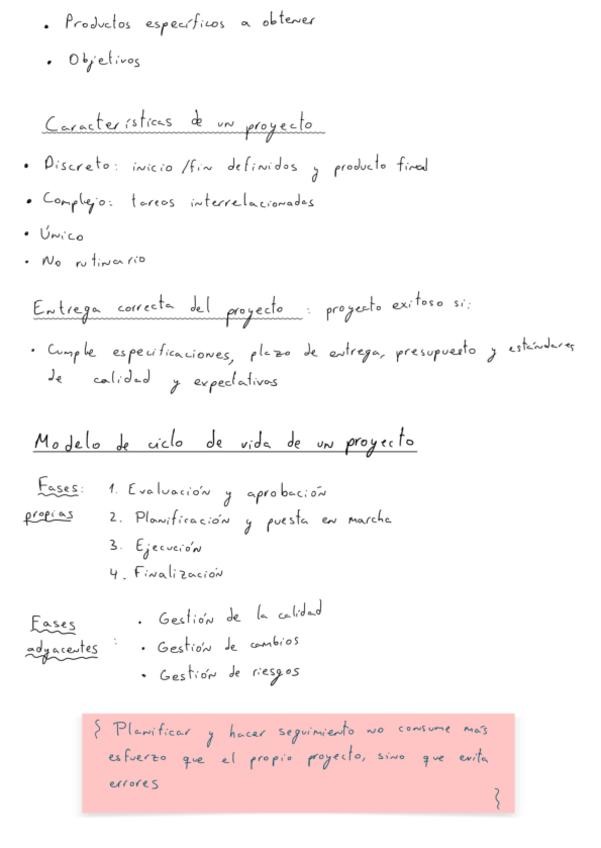 • Productos específicos a obtener
• Objetivos
Características de un proyecto
• Discreto: inicio/fin definidos y producto final
• Complejo: tareas interrelacionadas
• Único
• No rutinario
Entrega correcta del proyecto : proyecto exitoso si:
• Cumple especificaciones, plazo de entrega, presupuesto y estándares
de calidad y expectativas
Modelo de ciclo de vida de un proyecto
Fases: 1. Evaluación y aprobación
propias 2. Planificación y puesta en marcha
3. Ejecución
4. Finalización
Fases : • Gestión de la calidad
adyacentes • Gestión de cambios
• Gestión de riesgos
{ Planificar y hacer seguimiento no consume más
esfuerzo que el propio proyecto, sino que evita
errores }